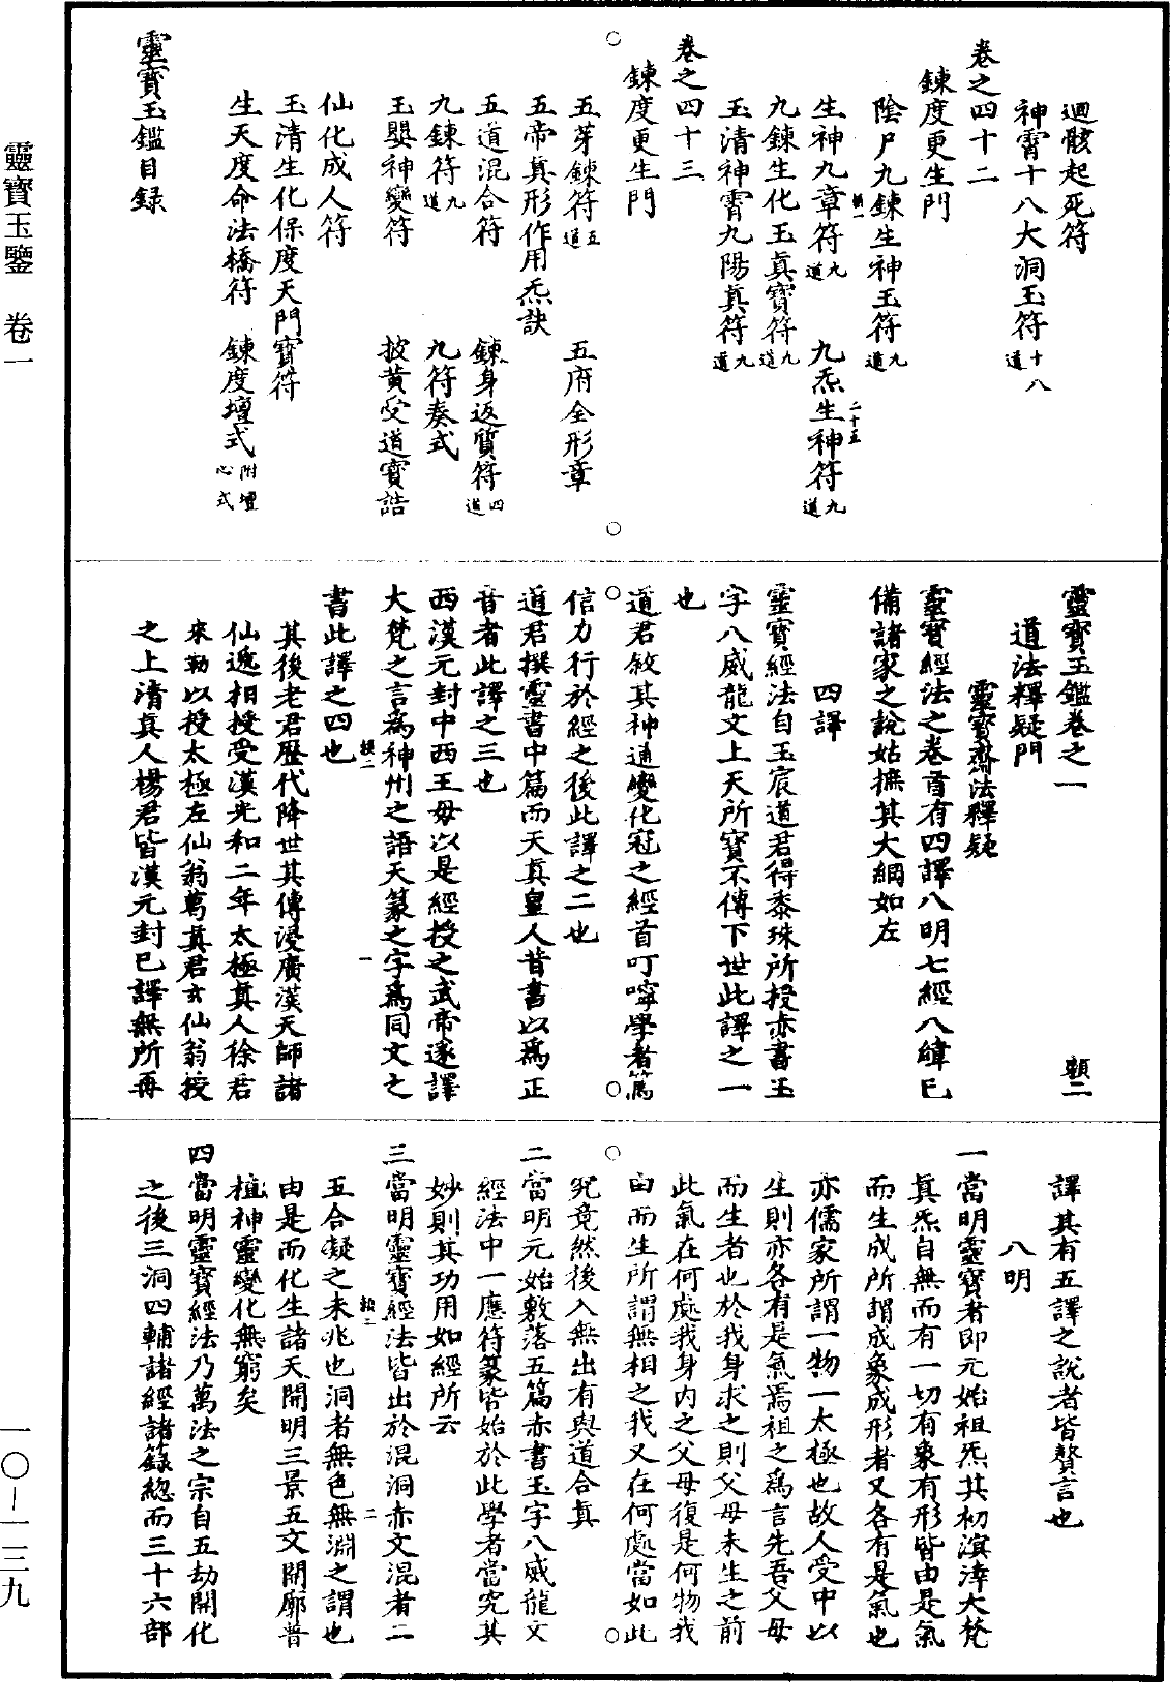 靈寶玉鑑 卷一
一〇—一三九
迴骸起死符
神霄十八大洞玉符十八道
卷之四十二
鍊度更生門
陰尸九鍊生神玉符九道
生神九章符九道 九炁生神符九道
二十五
九鍊生化玉真寶符九道
玉清神霄九陽真符九道
卷之四十三
鍊度更生門
五芽鍊符五道 五府全形章
五帝真形作用炁訣
五道混合符 鍊身返質符四道
九鍊符九道 九符奏式
玉嬰神變符 披黃受道寶誥
仙化成人符
玉清生化保度天門寶符
生天度命法橋符 鍊度壇式附壇心式
靈寶玉鑑目録
靈寶玉鑑卷之一 頼二
道法釋疑門
靈寶齋法釋疑
靈寶經法之卷首有四譯八明七經八緯已
備諸家之說姑撫其大綱如左
四譯
靈寶經法自玉宸道君得黍珠所授赤書玉
字八威龍文上天所寶不傳下世此譯之一
也
道君敘其神通變化冠之經首叮嚀學者篤
信力行於經之後此譯之二也
道君撰靈書中篇而天真皇人昔書以爲正
音者此譯之三也
西漢元封中西王母以是經授之武帝遂譯
大梵之言爲神州之語天篆之字爲同文之
書此譯之四也
其後老君歷代降世其傳漫廣漢天師諸
仙遞相授受漢光和二年太極真人徐君
來勒以授太極左仙翁葛真君玄仙翁授
之上清真人楊君皆漢元封已譯無所再
譯其有五譯之說者皆贅言也
八明
一當明靈寶者即元始祖炁其初溟涬大梵
真炁自無而有一切有象有形皆由是氣
而生成所謂成象成形者又各有是氣也
亦儒家所謂一物一太極也故人受中以
生則亦各有是氣焉祖之爲言先吾父母
而生者也於我身求之則父母未生之前
此氣在何處我身内之父母復是何物我
由而生所謂無相之我又在何處當如此
究竟然後入無出有與道合真
二當明元始敷落五篇赤書玉字八威龍文
經法中一應符篆皆始於此學者當究其
妙則其功用如經所云
三當明靈寶經法皆出於混洞赤文混者二
五合凝之未兆也洞者無色無淵之謂也
由是而化生諸天開明三景五文開廓普
植神靈變化無窮矣
四當明靈寶經法乃萬法之宗自五劫開化
之後三洞四輔諸經諸籙緫而三十六部